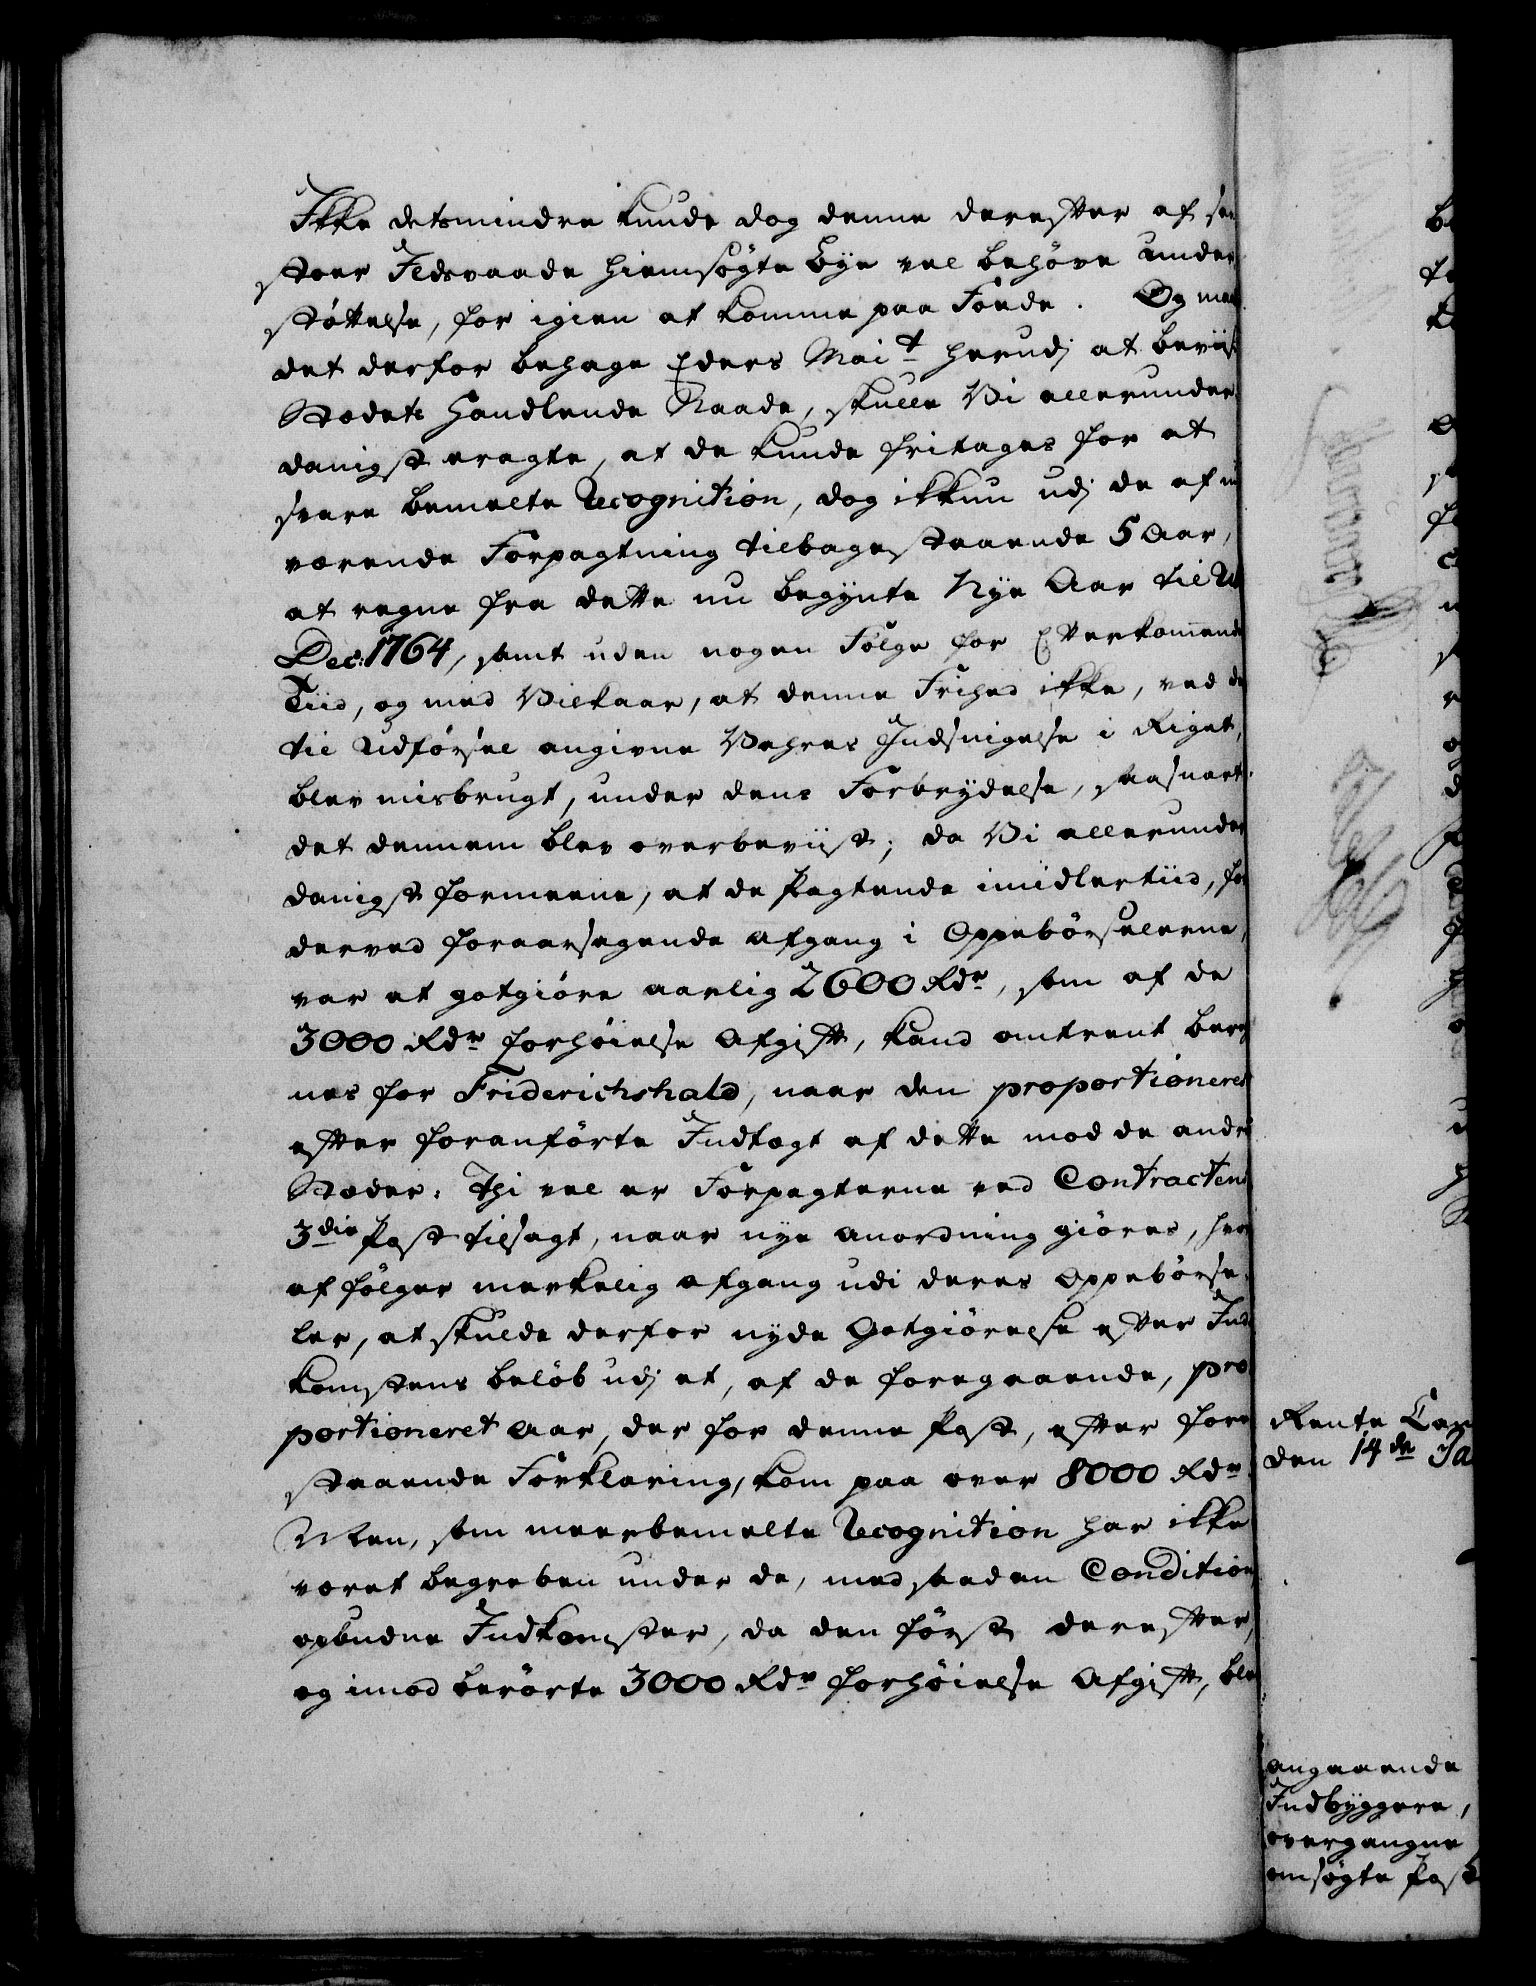 Ikke detsmindre kunde dog denne derefter af saa
stoer Ildsvaade hiemsøgte Bye vel behøve under-
støttelse, for igien at komme paa Foede. Og maatte
det derfor behage Eders Mai.t herudj at beviise
Stædets Handlende Naade, skulle Vi allerunder-
danigst eragte, at de kunde fritages for at
svare bemelte Recognition, dog ikkun udj de af nu
værende Forpagtning tilbagestaaende 5 Aar,
at regne fra dette nu begynte Nye Aar til Ult.
Dec: 1764, samt uden nogen Følge for Efterkommende
Tiid, og med Vilkaar, at denne Frihed ikke, ved de
til Udførsel angivne Vahres Indsnigelse i Riget,
blev misbrugt, under dens Forbrydelse, saasnart
det dennem blev overbeviist; da Vi allerunder
danigst formeene, at de Pagtende imidlertiid, for
derved foraarsagende Afgang i Oppebørselerne,
var at gotgiøre aarlig 2600 Rdr, som af de
3000 Rdr forhøielse Afgift, kand omtrent bereg
nes for Friderichshald, naar den proportioneres
efter foranførte Indtægt af dette mod de andre
Stæder. Thi vel er Forpagterne ved Contractens
3die Post tilsagt, naar nye Anordning giøres, hvor
af følger merkelig Afgang udi deres Oppebørse-
ler, at skulde derfor nyde Gotgiørelse efter Ind
komstens beløb udj et, af de foregaaende, pro
portioneret Aar, der for denne Post, efter fore
staaende Forklaring, kom paa over 8000 Rdr.
Men, som meerbemelte Recognition har ikke
været begreben under de, med saaden Condition
opbudne Indkomster, da den først derefter,
og imod berørte 3000 Rdr forhøielse Afgift, blev
Rente Cam
den 14de Ja
angaaende
Indbyggere,
overgangne
omsøgte Post